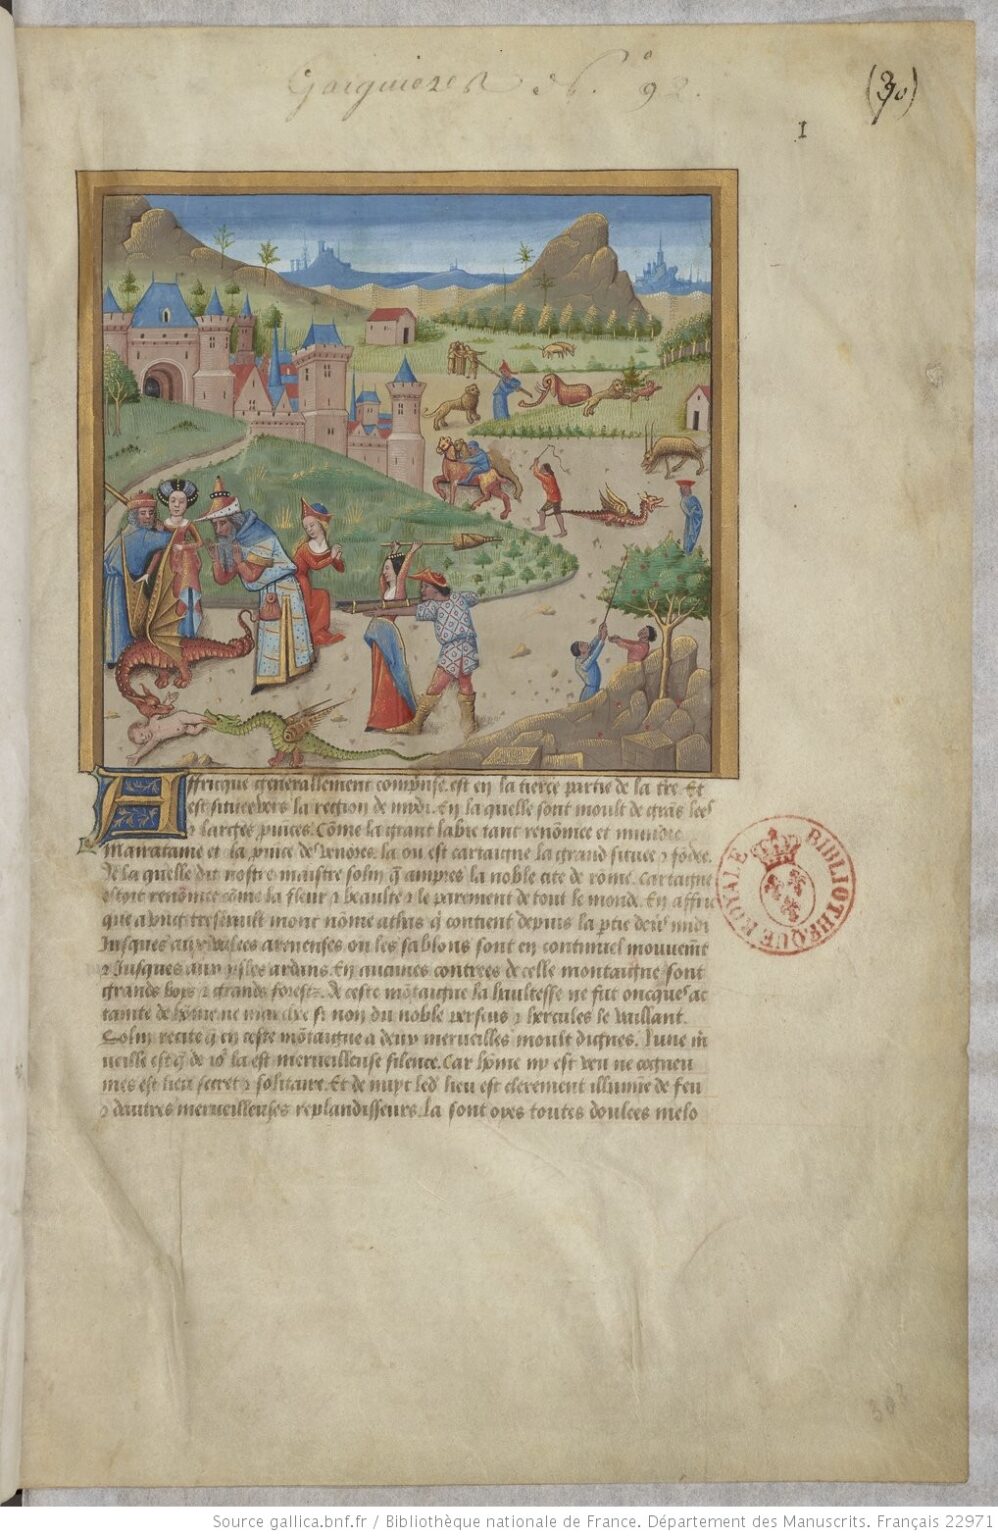 Gaignieres n.° 92.
(30)
I
Affricque generallement comprise est en la tierce partie de la tre. Et
est situee vers la region de midi. En la quelle sont moult de grās
⁊ larges puīces. Cōme la grant labie tant renōmee et
et la puīce de la ou est cartaigne la grand situee ⁊ fōdee.
De la quelle dit nostre maistre solin q̄ ampres la noble cite de rōme. Cartaigne
estoit renōmee cōme la fleur ⁊ beaulte ⁊ le parement de tout le monde. En affric
que a vng treshault mont nōme athlas q̄ contient depuis la ptie deūs midi
Iusques aux ou les sablons sont en continuel mouuemēt
⁊ Iusques aux ysles En aucunes contrees de celle montaigne sont
grands boys ⁊ grands forestz. De ceste mōtaigne la haultesse ne fut oncques at
tainte de hōme ne marchee si non du noble perseus ⁊ hercules le vaillant.
Solin recite q̄ en ceste mōtaigne a deux merueilles moult dignes. Lune m̄
ueille est q̄ de io2 la est merueilleuse silence. Car hōme ny est veu ne cogneu
mes est lieu secret ⁊ solitaire. Et de nuyt led lieu est clerement illumīe de feu
⁊ dautres merueilleuses replandisseurs. La sont oyes toutes doulces melo
BIBLIOTHEQUE ROYALE
Source gallica.bnf.fr / Bibliothèque nationale de France. Département des Manuscrits. Français 22971